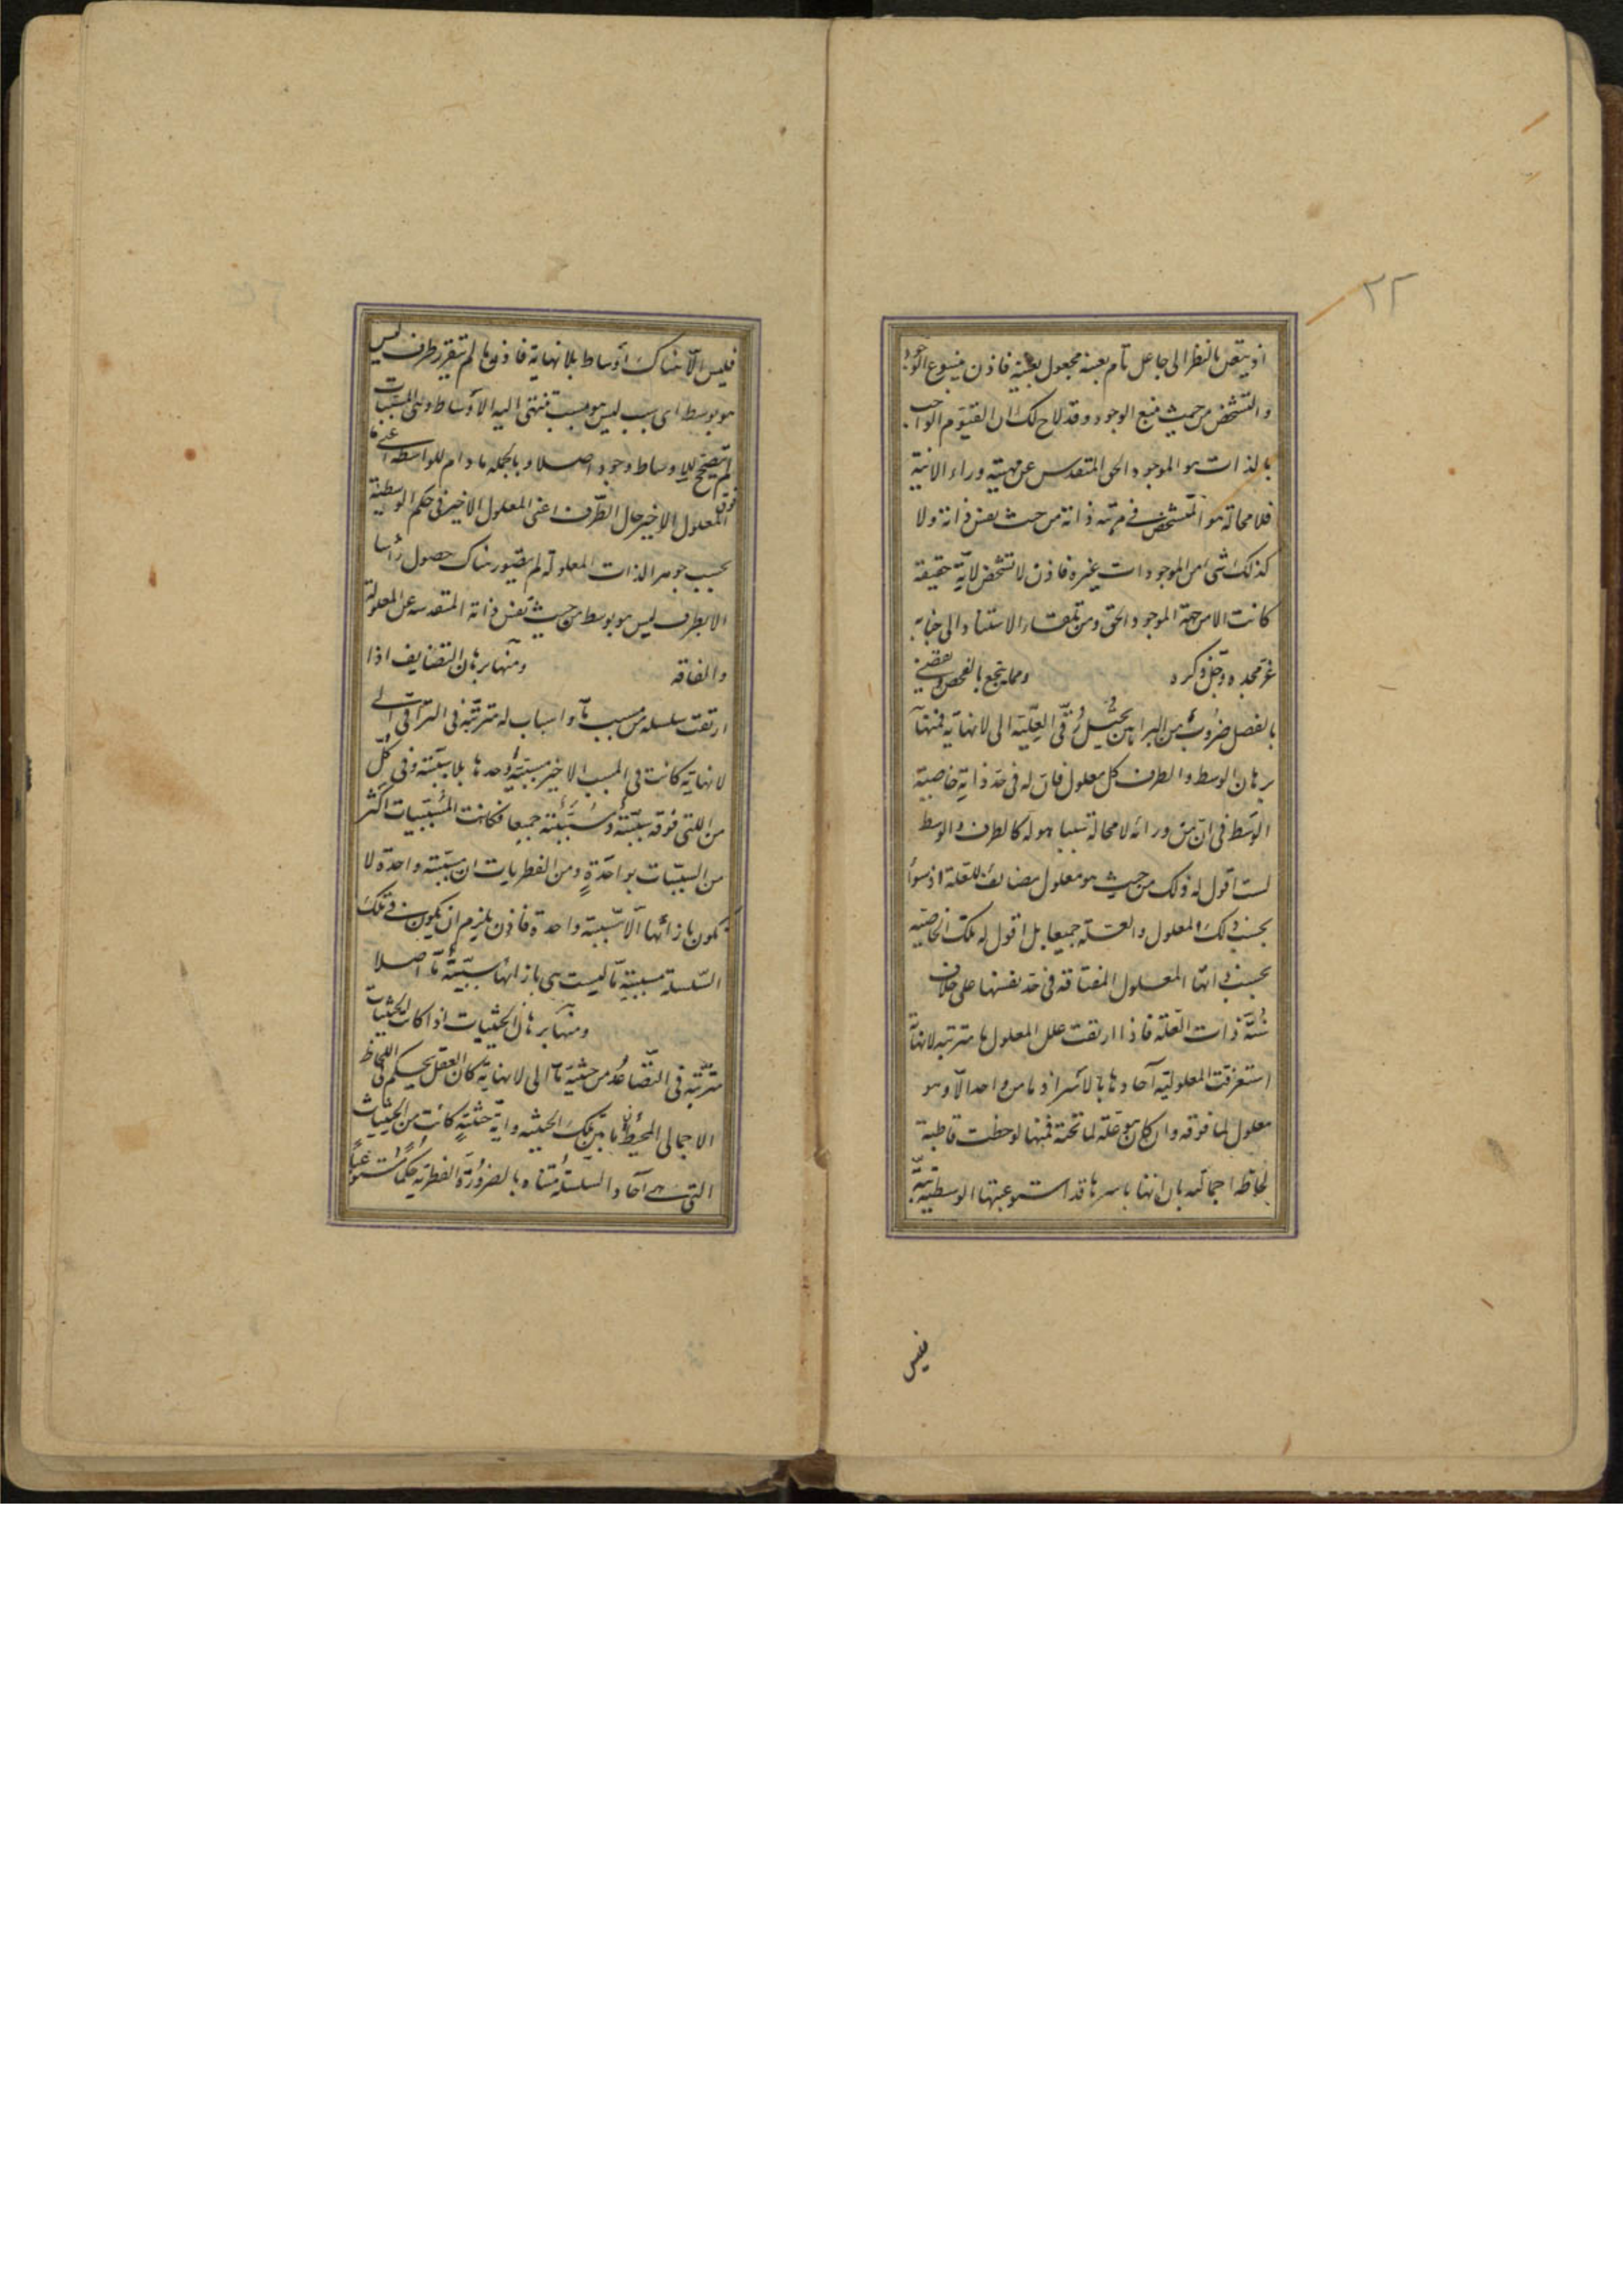 ٢٢
اذ يتعين بالنظر الى جاعل تام بعينه مجعول بعينه فاذن ينبوع الوجود
والتشخص من حيث منبع الوجود وقد لاح لك ان القيوم الواجب
بالذات هو الموجود الحق المتقدس عن مهية وراء الانية
فلا محالة هو المتشخص في مرتبة ذاته من حيث نفس ذاته ولا
كذلك شيء من الموجودات غيره فاذن لا تشخص لاية حقيقة
كانت الا من جهة الموجود الحق ومن تلقاء الاستناد الى جنابه
عز مجده وجل ذكره ومما ينجع بالفحص ويقضي
بالفصل ضروب من البراهين تحيل ترقي العلية الى لا نهاية فمنها
برهان الوسط والطرف كل معلول فان له في حد ذاته خاصية
الوسط في ان من ورائه لا محالة سببا هو له كالطرف والوسط
لست اقول له ذلك من حيث هو معلول مضايف للعلة اذ سواء
بحسب ذلك المعلول والعلة جميعا بل اقول له تلك الخاصية
بحسب ذاتها المعلول المفتاقة في حد نفسها على خلاف
سنة ذات العلة فاذا ارتقت علل المعلول ما مترتبة لا نهاية
استغرقت المعلولية آحادها بالاسر اذ ما من واحد الا وهو
معلول لما فوقه وان كان هو علة لما تحته فمنها لوحظت قاطبة
لحاظة اجمالية بان انها باسرها قد استوعبتها الوسطية
فليس
فليس الا هناك اوساط بلا نهاية فاذن ما لم يتقرر طرف ليس
هو بوسط اي سبب ليس هو بمسبب تنتهي اليه الاوساط وهي المسببات
لم يتصحح للاوساط وجود اصلا وبالجملة ما دام للواسطة اعني ما
فوق المعلول الاخير حال الطرف اعني المعلول الاخير في حكم الوسطية
بحسب جوهر الذات المعلولة لم يتصور هناك حصول رأسا
الا بطرف ليس هو بوسط من حيث نفس ذاته المتقدسة عن المعلولية
والفاقة ومنها برهان التضايف اذا
ارتقت سلسلة من مسبب ما واسباب له مترتبة في التراقي الى
لا نهاية كانت في المسبب الاخير مسببية وحدها بلا سببية وفي كل
من التي فوقه سببية ومسببية جميعا فكانت المسببيات اكثر
من السببيات بواحدة ومن الفطريات ان مسببية واحدة لا
يكون بازائها الا سببية واحدة فاذن يلزم ان يكون في تلك
السلسلة مسببية ما ليست هي بازائها سببية ما اصلا
ومنها برهان الحيثيات اذا كانت الحيثيات
مترتبة في التصاعد من حيثية ما الى لا نهاية كان العقل يحكم في اللحاظ
الاجمالي المحيط بان ما بين تلك الحيثية واية حيثية كانت من الحيثيات
التي هي آحاد السلسلة متناه بالضرورة الفطرية حكما مستوعبا